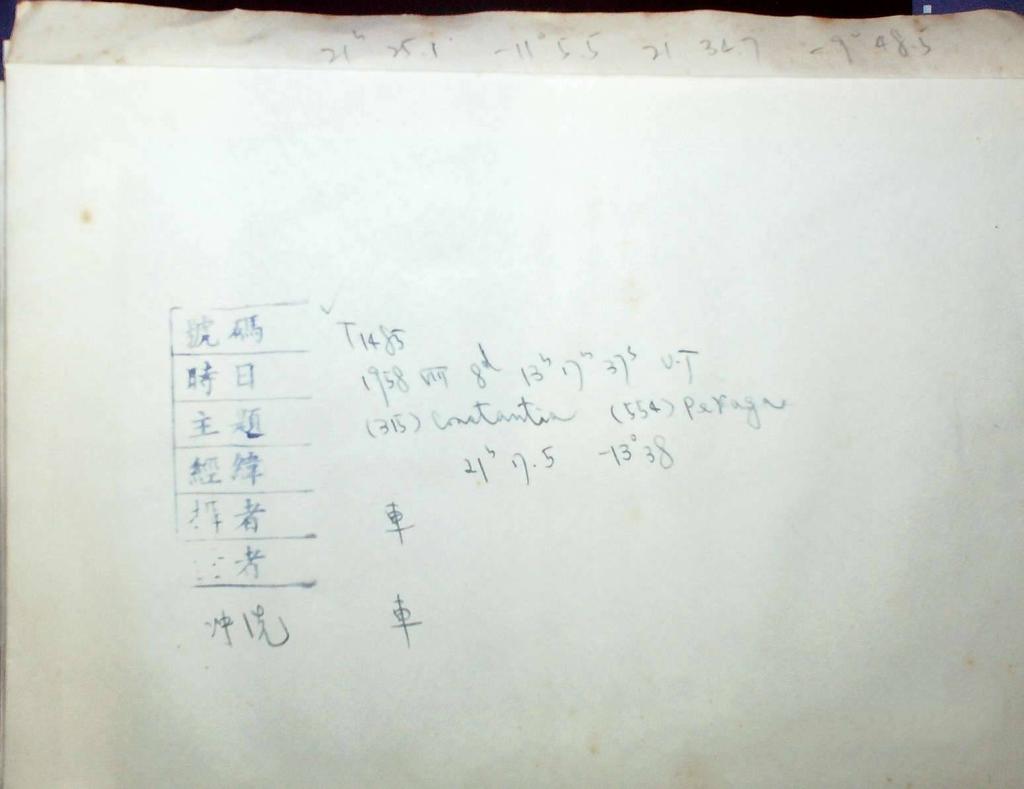 21ʰ 25.1 -11° 5.5 21 34.7 -9° 48.5
號碼 T1485
時日 1958 VIII 8ᵈ 13ʰ 17ᵐ 37ˢ U.T
主題 (315) Constantia (554) Peraga
經緯 21ʰ 17.5 -13°38
者 車
者
冲洗 車